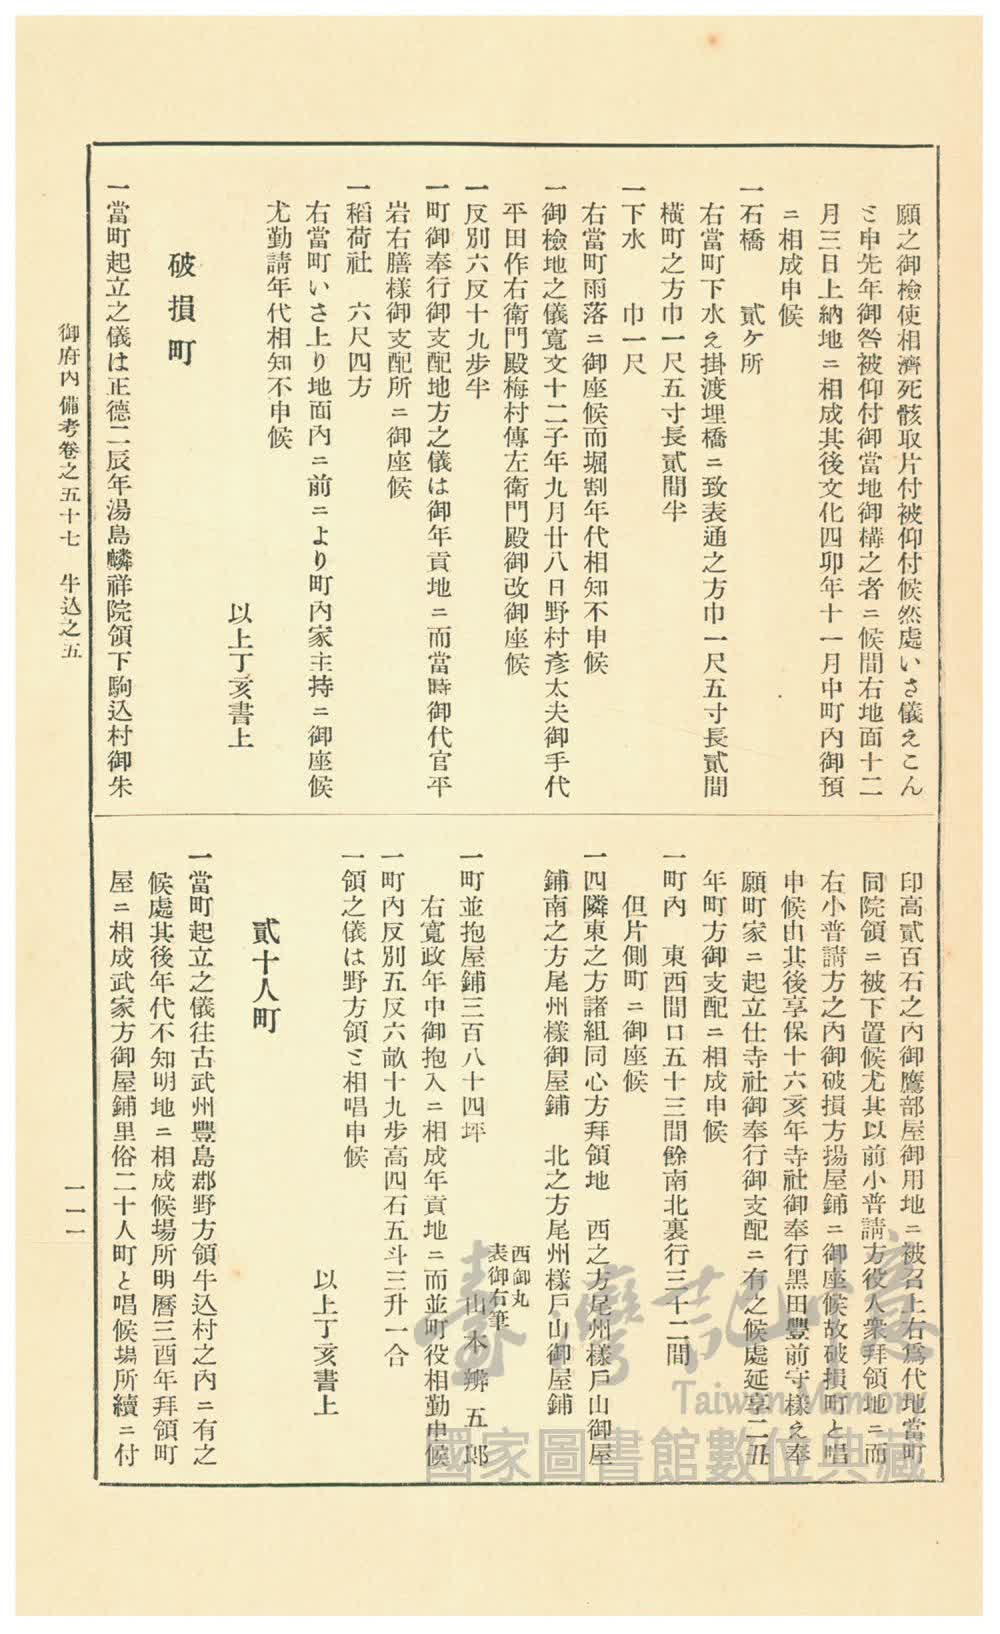 願之御檢使相濟死骸取片付被仰付候然處いさ儀えこん
ミ申先年御咎被仰付御當地御構之者ニ候間右地面十二
月三日上納地ニ相成其後文化四卯年十一月中町內御預
ニ相成申候
一石橋　貳ケ所
右當町下水え掛渡埋橋ニ致表通之方巾一尺五寸長貳間
橫町之方巾一尺五寸長貳間半
一下水　巾一尺
右當町雨落ニ御座候而堀割年代相知不申候
一御檢地之儀寬文十二子年九月廿八日野村彥太夫御手代
平田作右衛門殿梅村傳左衛門殿御改御座候
一反別六反十九步半
一町御奉行御支配地方之儀は御年貢地ニ而當時御代官平
岩右膳樣御支配所ニ御座候
一稻荷社　六尺四方
右當町いさ上り地面內ニ前ニより町內家主持ニ御座候
尤勤請年代相知不申候
以上丁亥書上
破損町
一當町起立之儀は正德二辰年湯島麟祥院領下駒込村御朱
印高貳百石之內御鷹部屋御用地ニ被召上右爲代地當町
同院領ニ被下置候尤其以前小普請方役人衆拜領地ニ而
右小普請方之內御破損方揚屋鋪ニ御座候故破損町と唱
申候由其後享保十六亥年寺社御奉行黑田豐前守樣え奉
願町家ニ起立仕寺社御奉行御支配ニ有之候處延享二丑
年町方御支配ニ相成申候
一町內　東西間口五十三間餘南北裏行三十二間
但片側町ニ御座候
一四隣東之方諸組同心方拜領地　西之方尾州樣戶山御屋
鋪南之方尾州樣御屋鋪　北之方尾州樣戶山御屋鋪
一町並抱屋鋪三百八十四坪　西御丸表御右筆　山本辨五郎
右寬政年中御抱入ニ相成年貢地ニ而並町役相勤申候
一町內反別五反六畝十九步高四石五斗三升一合
一領之儀は野方領ミ相唱申候
以上丁亥書上
貳十人町
一當町起立之儀往古武州豐島郡野方領牛込村之內ニ有之
候處其後年代不知明地ニ相成候場所明曆三酉年拜領町
屋ニ相成武家方御屋鋪里俗二十人町と唱候場所續ニ付
御府內備考卷之五十七　牛込之五
一一一
臺灣記憶
Taiwan Memory
國家圖書館數位典藏